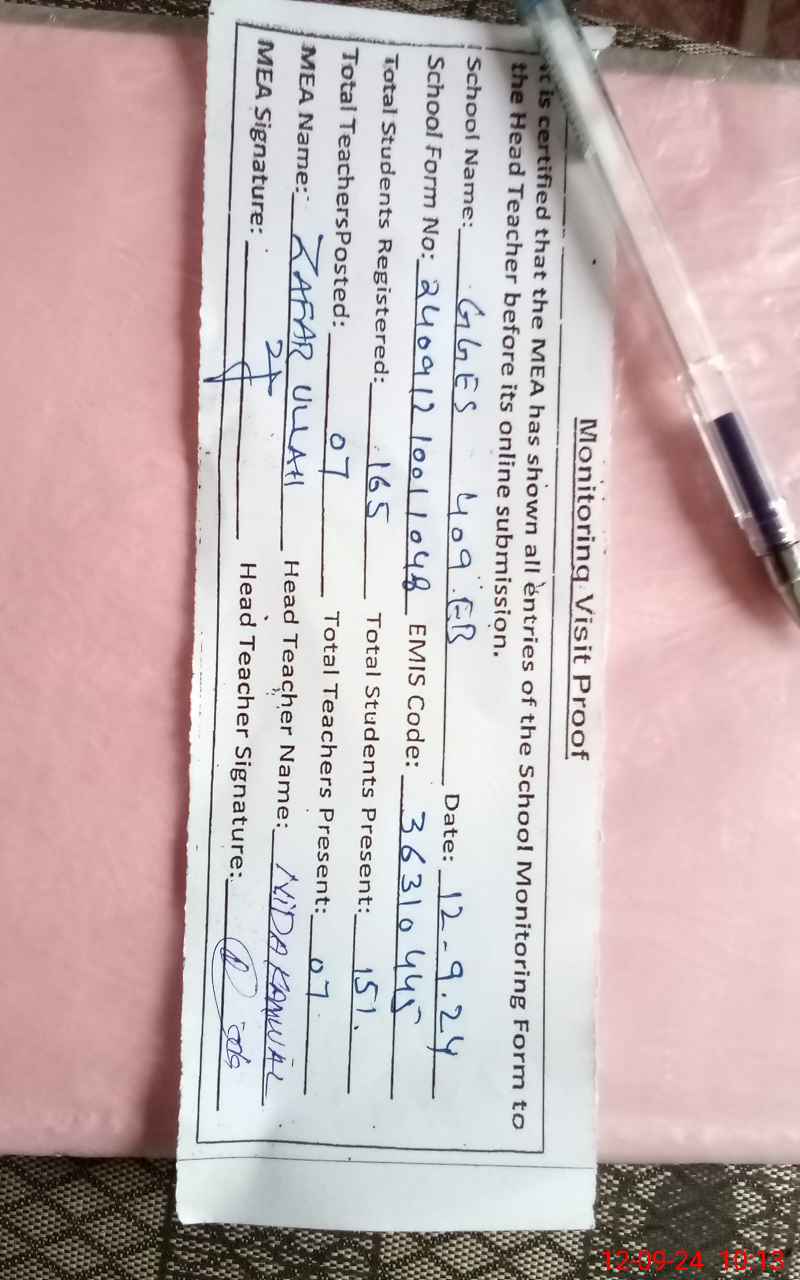 Monitoring Visit Proof
It is certified that the MEA has shown all entries of the School Monitoring Form to
the Head Teacher before its online submission.
School Name: GGES 409 EB Date: 12-9.24
School Form No: 24091210011048 EMIS Code: 36310445
Total Students Registered: 165 Total Students Present: 151.
Total TeachersPosted: 07 Total Teachers Present: 07
MEA Name: ZAFAR ULLAH Head Teacher Name: NIDA KANWAL
MEA Signature: Head Teacher Signature:
12-09-24 10:13